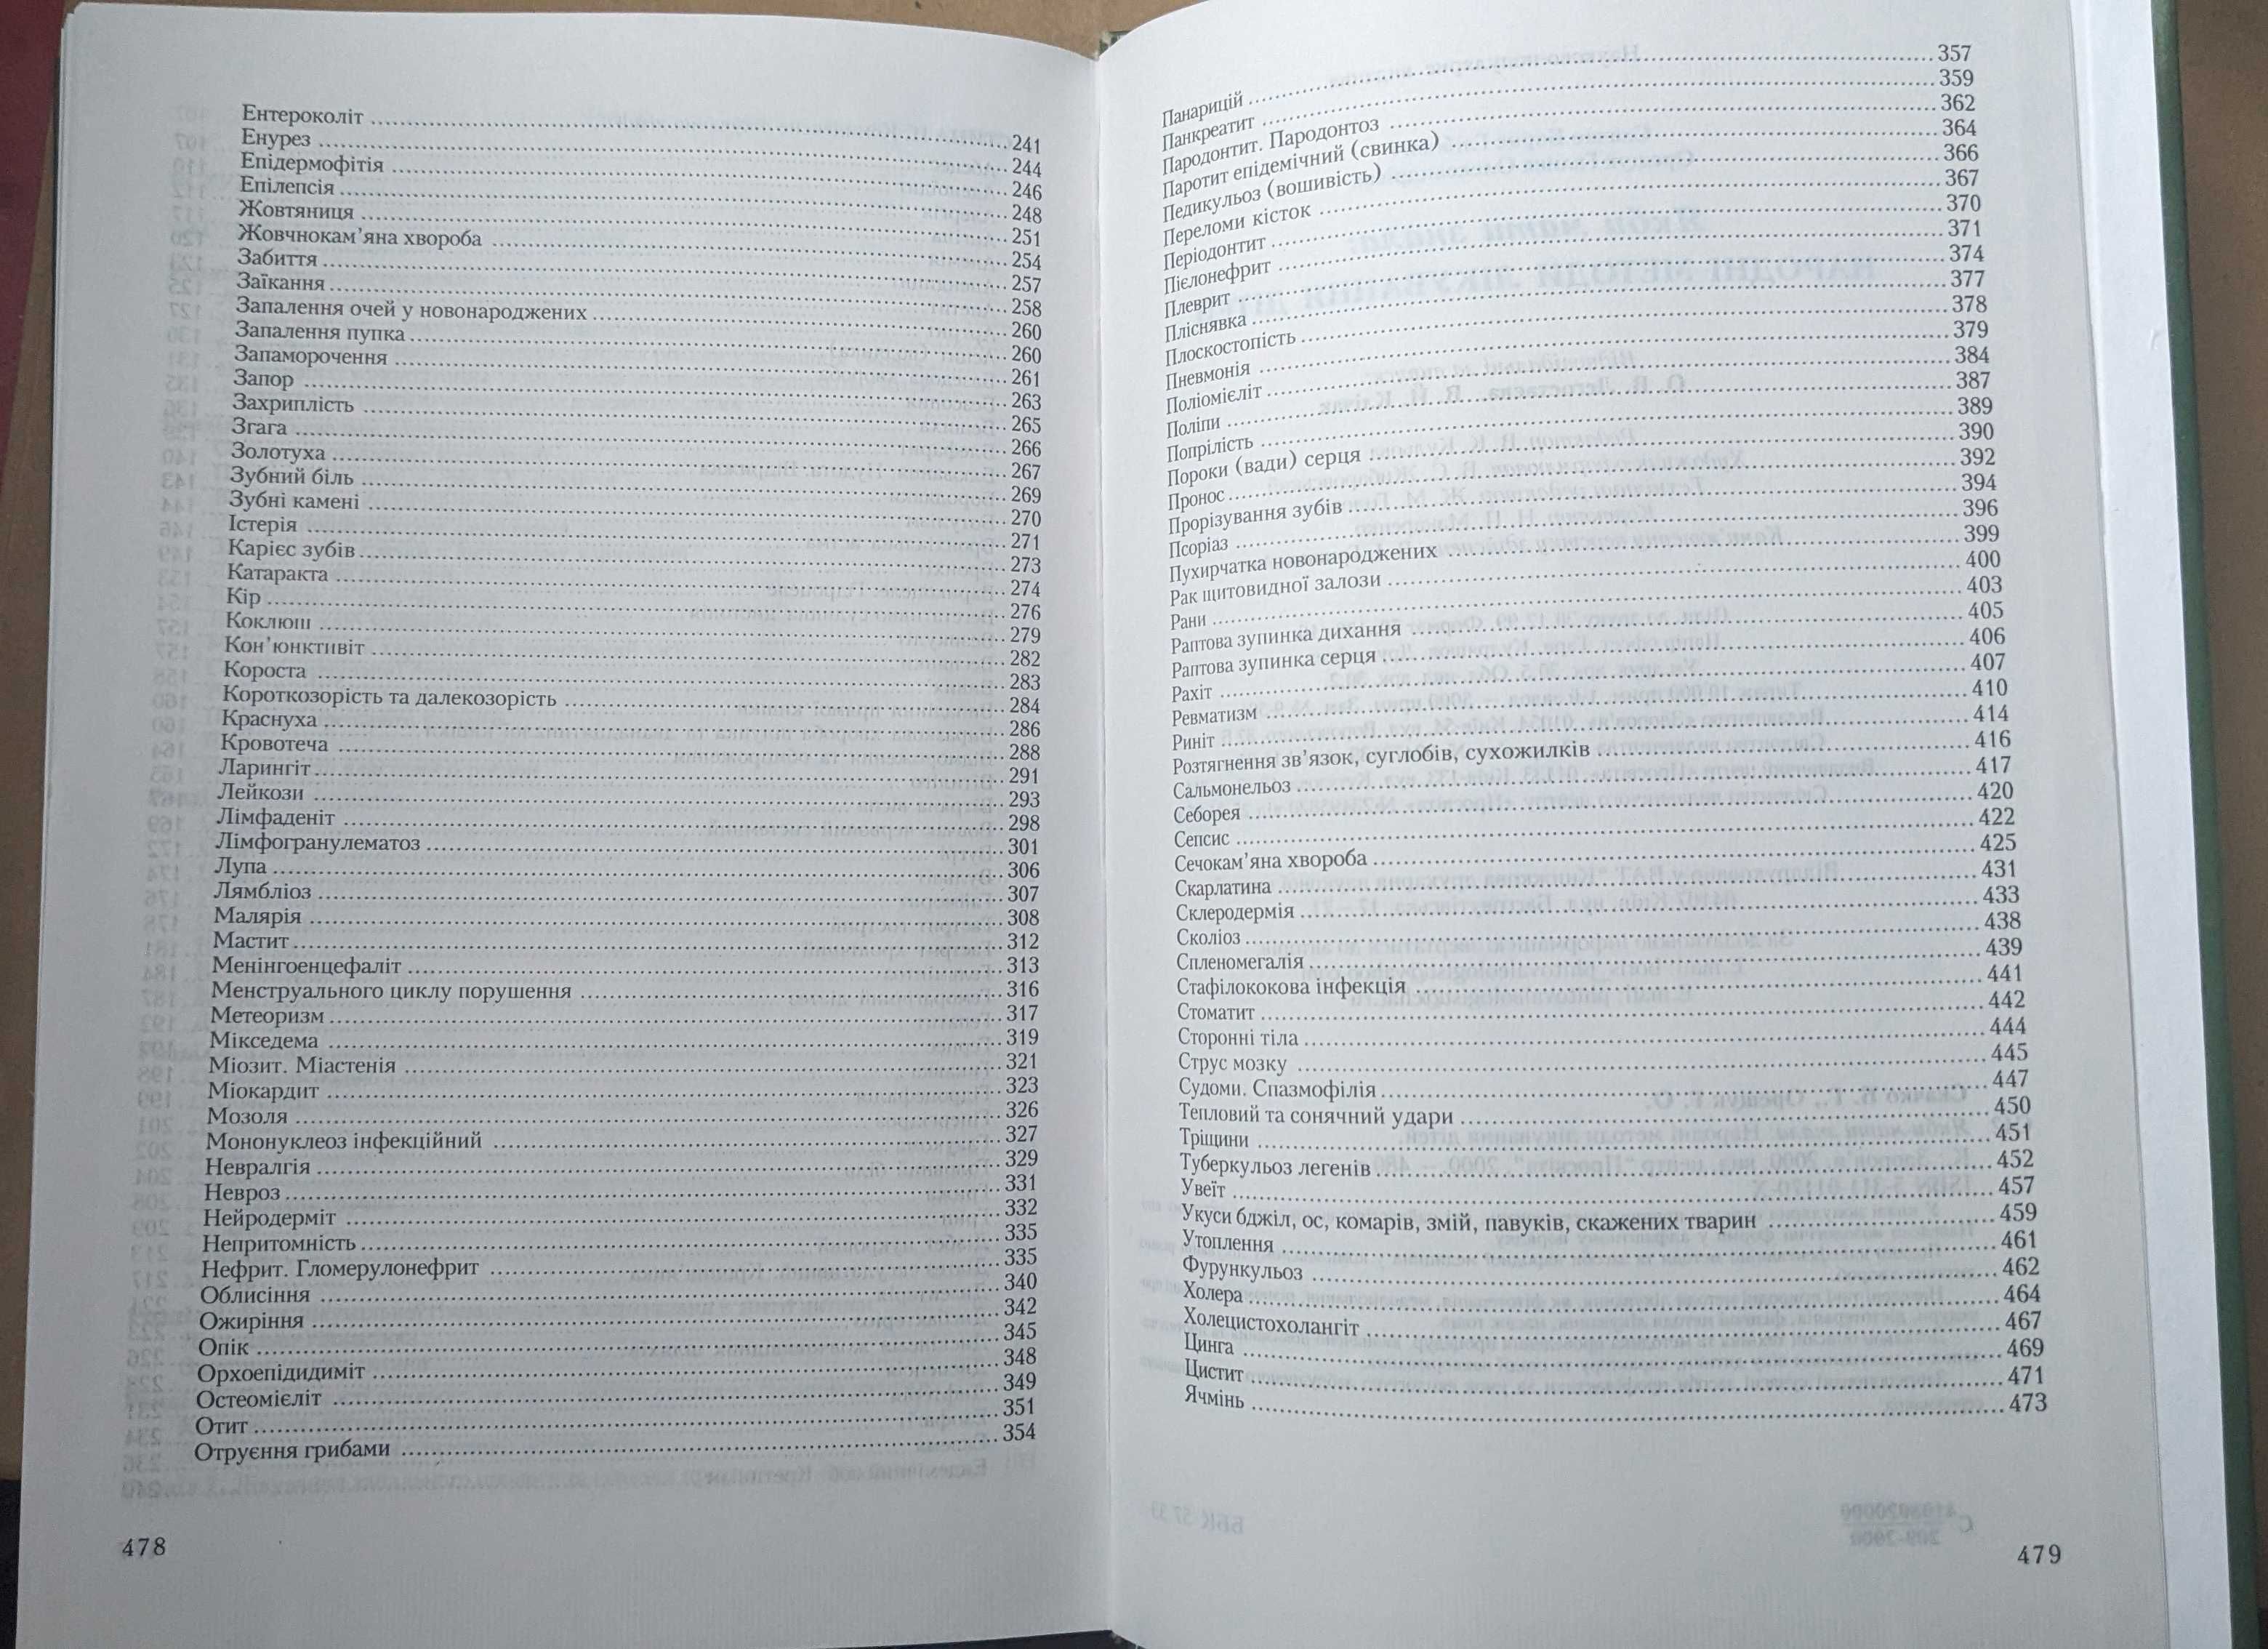 Ентероколіт ........ 241
Енурез ........ 244
Епідермофітія ........ 246
Епілепсія ........ 248
Жовтяниця ........ 251
Жовчнокам’яна хвороба ........ 254
Забиття ........ 257
Заїкання ........ 258
Запалення очей у новонароджених ........ 260
Запалення пупка ........ 260
Запаморочення ........ 261
Запор ........ 263
Захриплість ........ 265
Згага ........ 266
Золотуха ........ 267
Зубний біль ........ 269
Зубні камені ........ 270
Істерія ........ 271
Карієс зубів ........ 273
Катаракта ........ 274
Кір ........ 276
Коклюш ........ 279
Кон’юнктивіт ........ 282
Короста ........ 283
Короткозорість та далекозорість ........ 284
Краснуха ........ 286
Кровотеча ........ 288
Ларингіт ........ 291
Лейкози ........ 293
Лімфаденіт ........ 298
Лімфогранулематоз ........ 301
Лупа ........ 306
Лямбліоз ........ 307
Малярія ........ 308
Мастит ........ 312
Менінгоенцефаліт ........ 313
Менструального циклу порушення ........ 316
Метеоризм ........ 317
Мікседема ........ 319
Міозит. Міастенія ........ 321
Міокардит ........ 323
Мозоля ........ 326
Мононуклеоз інфекційний ........ 327
Невралгія ........ 329
Невроз ........ 331
Нейродерміт ........ 332
Непритомність ........ 335
Нефрит. Гломерулонефрит ........ 335
Облисіння ........ 340
Ожиріння ........ 342
Опік ........ 345
Орхоепідидиміт ........ 348
Остеомієліт ........ 349
Отит ........ 351
Отруєння грибами ........ 354
478
Панарицій ........ 357
Панкреатит ........ 359
Пародонтит. Пародонтоз ........ 362
Паротит епідемічний (свинка) ........ 364
Педикульоз (вошивість) ........ 366
Переломи кісток ........ 367
Періодонтит ........ 370
Пієлонефрит ........ 371
Плеврит ........ 374
Пліснявка ........ 377
Плоскостопість ........ 378
Пневмонія ........ 379
Поліомієліт ........ 384
Поліпи ........ 387
Попрілість ........ 389
Пороки (вади) серця ........ 390
Пронос ........ 392
Прорізування зубів ........ 394
Псоріаз ........ 396
Пухирчатка новонароджених ........ 399
Рак щитовидної залози ........ 400
Рани ........ 403
Раптова зупинка дихання ........ 405
Раптова зупинка серця ........ 406
Рахіт ........ 407
Ревматизм ........ 410
Риніт ........ 414
Розтягнення зв’язок, суглобів, сухожилків ........ 416
Сальмонельоз ........ 417
Себорея ........ 420
Сепсис ........ 422
Сечокам’яна хвороба ........ 425
Скарлатина ........ 431
Склеродермія ........ 433
Сколіоз ........ 438
Спленомегалія ........ 439
Стафілококова інфекція ........ 441
Стоматит ........ 442
Сторонні тіла ........ 444
Струс мозку ........ 445
Судоми. Спазмофілія ........ 447
Тепловий та сонячний удари ........ 450
Тріщини ........ 451
Туберкульоз легенів ........ 452
Увеїт ........ 457
Укуси бджіл, ос, комарів, змій, павуків, скажених тварин ........ 459
Утоплення ........ 461
Фурункульоз ........ 462
Холера ........ 464
Холецистохолангіт ........ 467
Цинга ........ 469
Цистит ........ 471
Ячмінь ........ 473
479